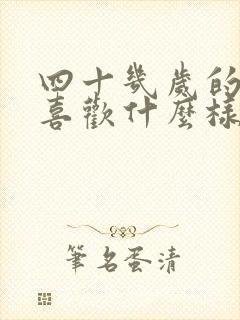 四十幾歲的
喜歡什麼樣
筆名蛋清